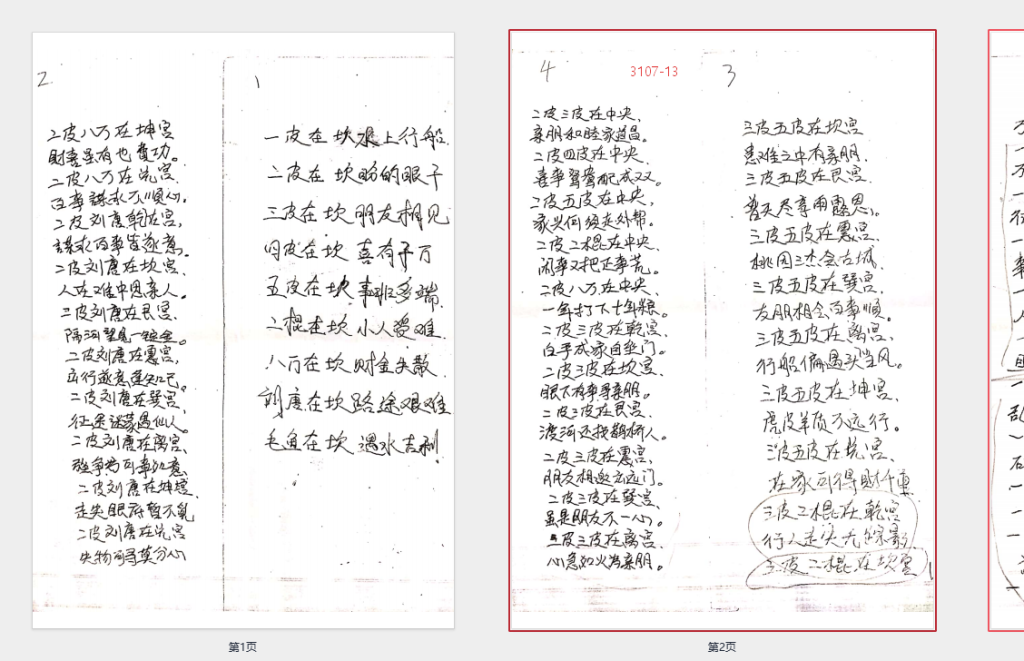 2
二皮八万在坤宫
财喜虽有也费功。
二皮八万在兑宫.
百事謀求不順心.
二皮刘唐乾在宫,
謀求百事皆遂意.
二皮刘唐在坎宫.
人在难中思亲人.
二皮刘唐在艮宫.
隔河望見一锭金。
二皮刘唐在震宫,
二皮刘唐在巽宫.
二皮刘唐在离宫.
二皮刘唐在坤宫.
走失眼前暂不乱
二皮刘唐在兑宫
失物可寻莫分心
1
一皮在坎水上行船.
二皮在坎盼的眼干
三皮在坎朋友相见
四皮在坎喜有千万
五皮在坎事班多端.
二棍在坎小人受难.
八万在坎财金失散.
刘唐在坎路途艰难
毛鱼在坎遇水吉利.
第1页
4
3107-13
二皮三皮在中央,
亲朋和睦家道昌。
二皮四皮在中央.
喜事鸳鸯配成双。
二皮五皮在中央,
家兴何须走外帮。
二皮二棍在中央.
闲事又把正事荒。
二皮八万在中央.
一年打下七年粮。
二皮三皮在乾宫.
白手成家自坐门。
二皮三皮在坎宫.
眼下有事寻亲朋。
二皮三皮在艮宫.
渡河还找鹊桥人。
二皮三皮在震宫.
朋友相邀去远门。
二皮三皮在巽宫.
虽是朋友不一心。
二皮三皮在离宫.
心急如火为亲朋。
3
三皮五皮在坎宫
患难之中有亲朋.
三皮五皮在艮宫.
普天尽享雨露恩。
三皮五皮在震宫.
桃园三杰会古城.
三皮五皮在巽宫.
友朋相会百事順.
三皮五皮在离宫.
行船偏遇头当风。
三皮五皮在坤宫.
虎皮羊质不远行。
三皮五皮在兑宫.
在家可得財仟重
三皮二棍在乾宫
行人走失无踪影
三皮二棍在坎宫
第2页